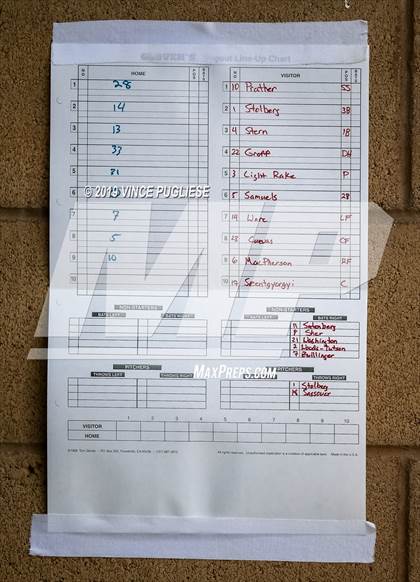 GLOVER'S Dugout Line-Up Chart
NO HOME POS BATS NO VISITOR POS BATS
1 28 1 10 Prather SS
2 14 2 1 Stolberg 3B
3 13 3 4 Stern 1B
4 33 4 22 Groff DH
5 21 5 3 Light Rake P
© 2019 VINCE PUGLIESE
6 6 5 Samuels 2B
7 7 7 14 Ware LF
8 5 8 Cuevas CF
9 10 9 6 MacPherson RF
10 10 19 Szentgyorgyi C
MP
NON-STARTERS NON-STARTERS
BATS LEFT BATS RIGHT BATS LEFT BATS RIGHT
Satenberg
Sher
21 Washington
2 Woods-Tutson
7 Bullinger
PITCHERS PITCHERS
THROWS LEFT THROWS RIGHT THROWS LEFT THROWS RIGHT
MAXPREPS.COM
1 Stolberg
Sassover
1 2 3 4 5 6 7 8 9 10
VISITOR
HOME
All rights reserved. Made in the U.S.A.